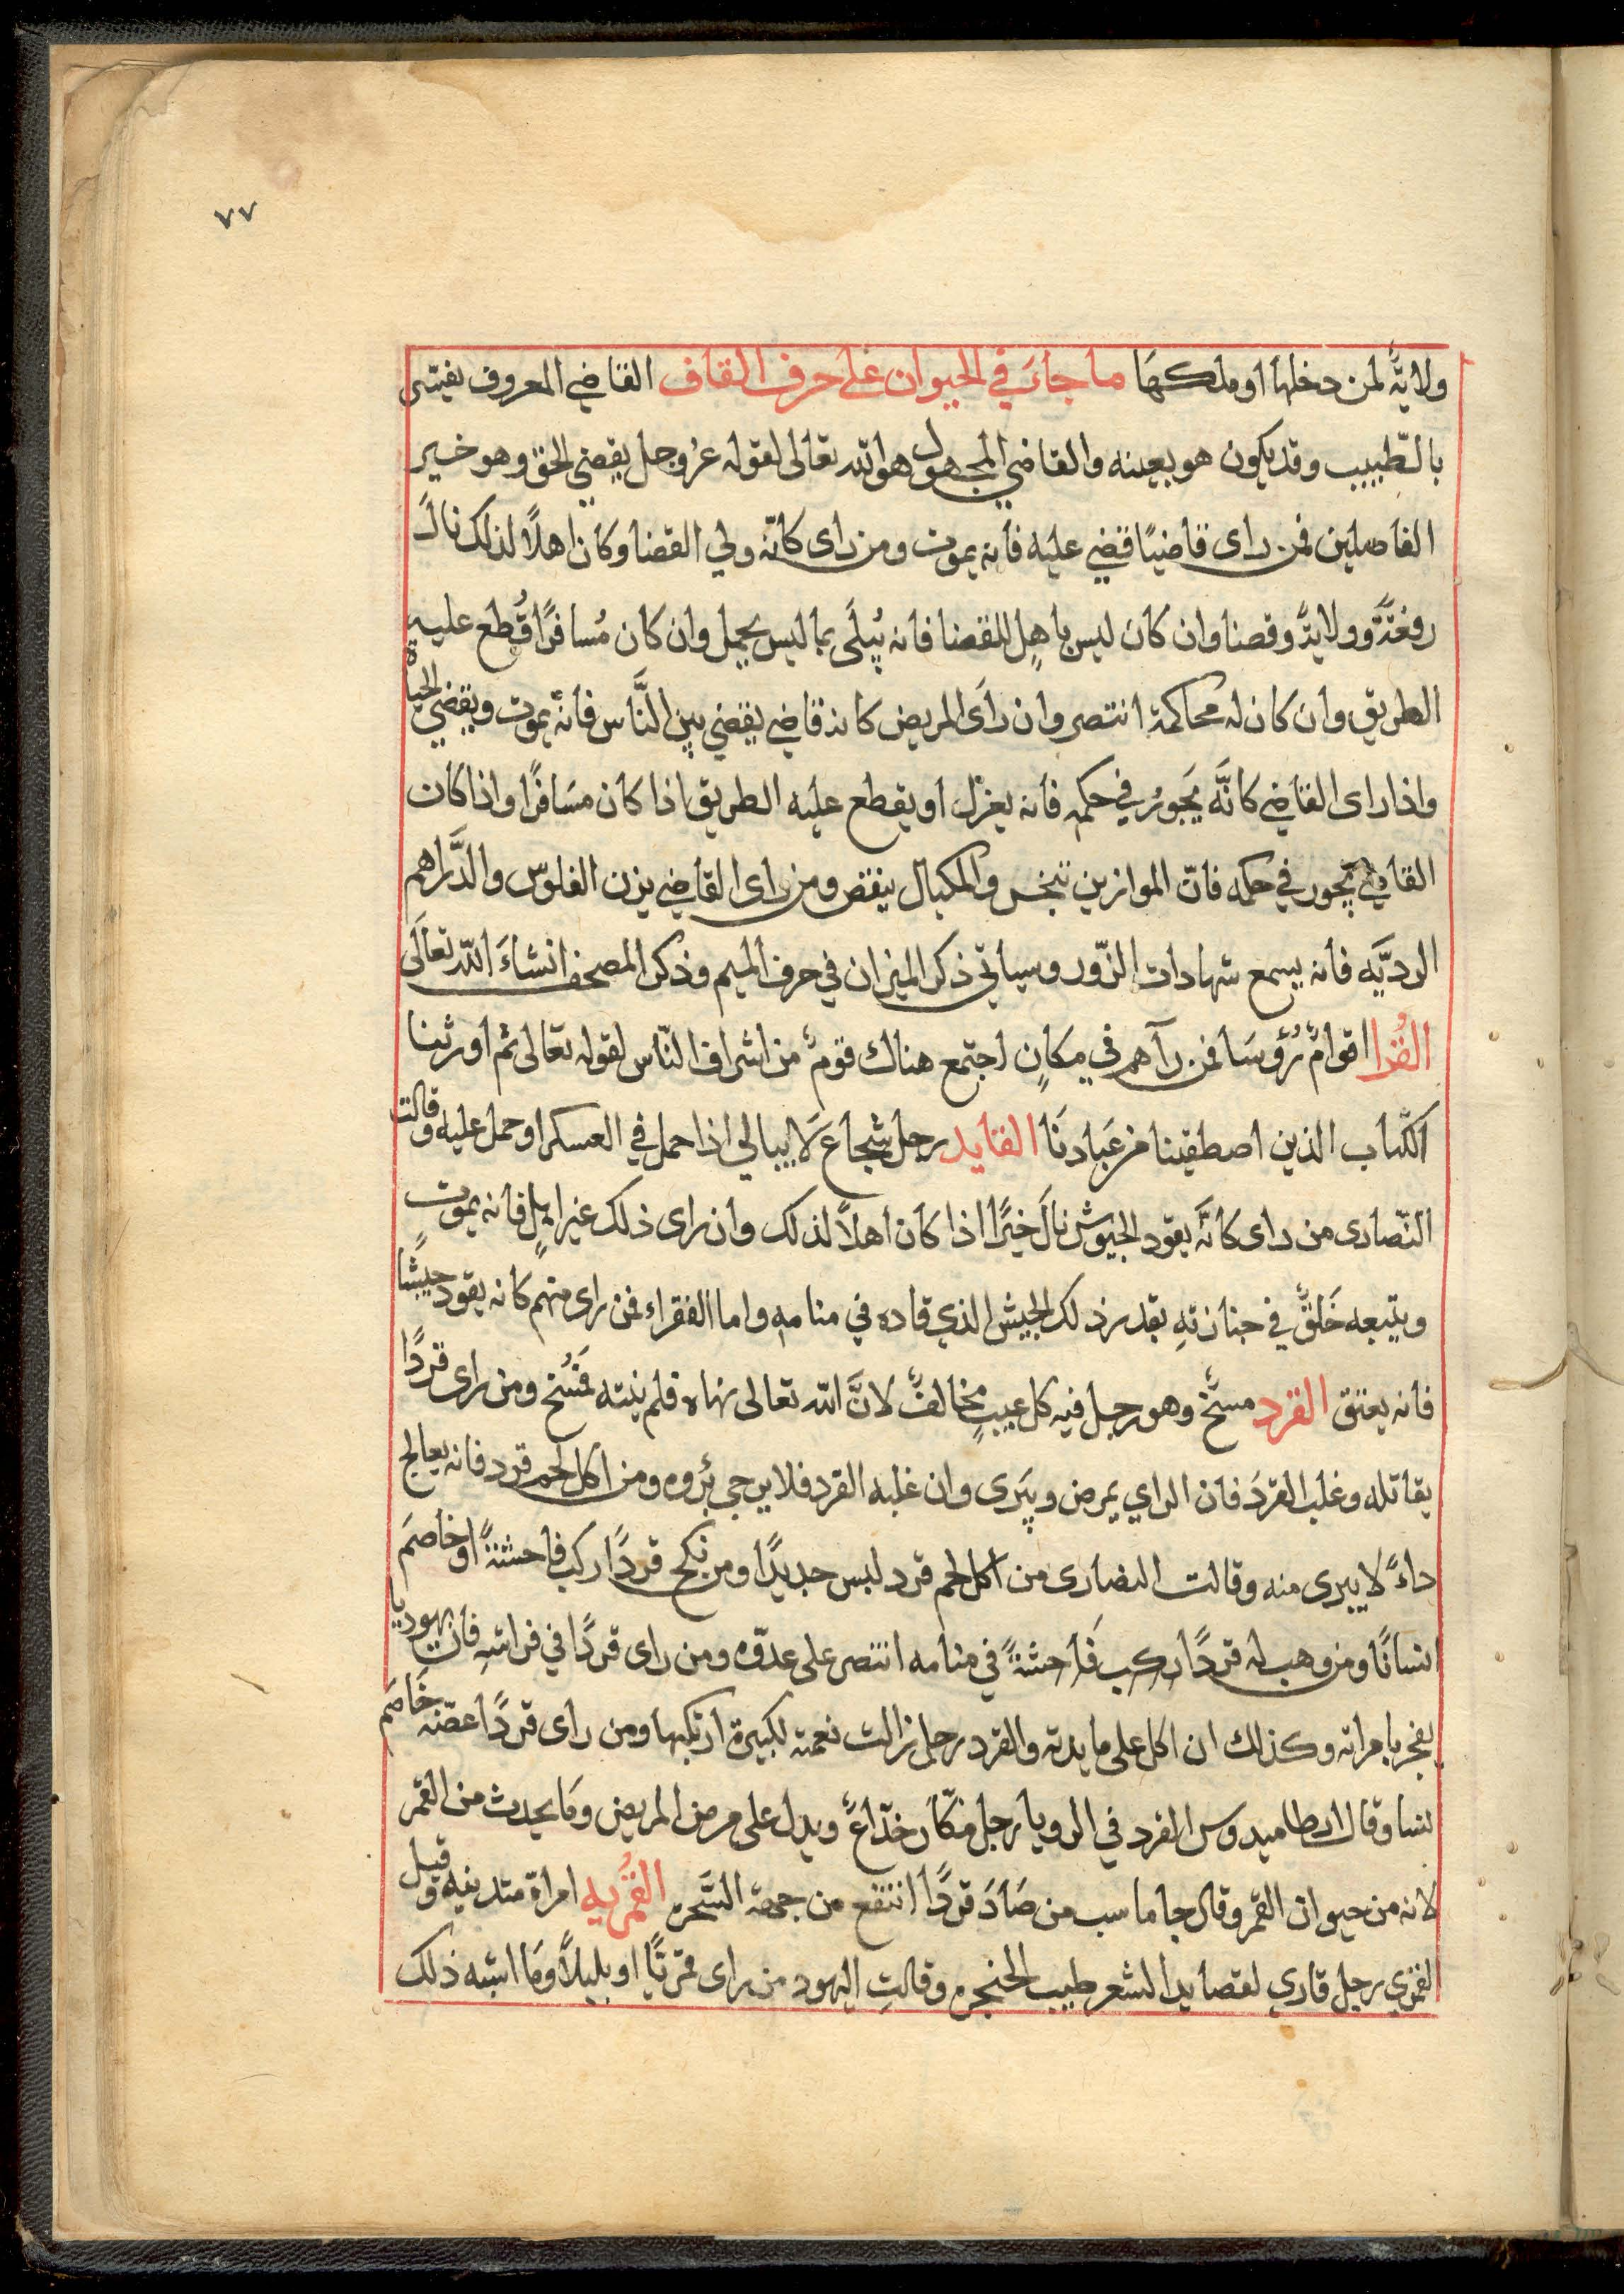 ٧٧
ولايةً لمن دخلها او ملكهَا ما جاءَ في الحيوان على حرف القاف القاضي المعروف يفسّر
بالطّبيب وقد يكون هو بعينه والقاضي المجهول هو الله تعالى لقوله عزوجل يقضي الحق وهو خير
الفاصلين فمن راى قاضيًا قضي عليه فانه يموت ومن راى كانّه ولي القضا وكان اهلاً لذلك نالَ
رفعةً وولايةً وقضا وان كان ليس باهلٍ للقضا فانه يُبلَى بما ليس بجميل وان كان مُسافرًا قُطع عليه
الطريق وان كان له محاكمة انتصر وان راَى المريض كانه قاضي يقضي بين النَّاس فانه يموت ويقضي الحياة
واذا راى القاضي كانَّه يَجورُ في حكمه فانه يعزل او يقطع عليه الطريق اذا كان مسَافرًا واذا كان
القاضي يجور في حكمه فانّ الموازين تبخس والمكيال ينقص ومن راى القاضي يزن الفلوس والدَّراهم
الرديَّه فانه يسمع شهادات الزّور وسياتي ذكر الميزان في حرف الميم وذكر المصحف انشاءَ الله تعالَى
القُرا اقوامٌ رُؤسَا فمن رآهم في مكانٍ اجتمع هناك قومٌ من اشراف النّاس لقوله تعالى ثم اورثنا
الكتاب الذين اصطفينا من عبادنَا القايد رجل شجاع لَا يبالي اذا حمل في العسكر او حمل عليه وقالت
النّصارى من راى كانَّه يقود الجيوش نالَ خيرًا اذا كان اهلاً لذلك وان راى ذلك غير اهلٍ فانه يموت
ويتبعه خَلقٌ في جنازتهِ بقدر ذلك الجيش الذي قاده في منامهِ واما الفقراء فمن راى منهم كانه يقود جيشًا
فانه يعتق القرد مسخٌ وهو رجل فيه كل عيبٍ مخالفٌ لانَّ الله تعالى نهاه فلم ينته فمُسخ ومن راى قردًا
يقاتله وغلب القردَ فان الراي يمرض ويَبرى وان غلبه القرد فلا يرجى بُروه ومن اكل لحم قرد فانه يعالج
داءً لا يبرى منه وقالت النصارى من اكل لحم قرد لبس جديدًا ومن نكح قردًا ركب فاحشةً او خاصمَ
انسانًا ومن وهب له قردًا ركب فَاحشةً في منامه انتصر على عدوّه ومن راى قردًا في فراشهِ فان يهوديا
يفجر بامراته وكذلك ان اكل على مايدته والقرد رجل زالت نعمته لكبيرة ارتكبها ومن راى قردًا عضّه خَاصَم
نسا وقال ارطاميدوس القرد في الرويا رجل مكّار خدّاعٌ ويدل على مرض المريض ومَا يحدث من القمر
لانه من حيوان القمر وقال جاماسب من صَادَ قردًا انتفع من جهة السَّحره القُمريه امراة متدينه وقيل
القمري رجل قاري لقصايد الشعر طيب الحنجره وقالتِ اليهود من راى قمريًّا او بلبلاً ومَا اشبه ذلك